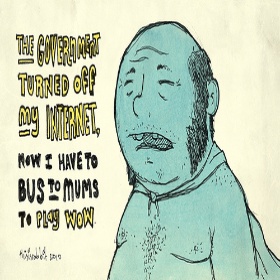 THE GOVERNMENT
TURNED OFF
MY INTERNET,
NOW I HAVE TO
BUS TO MUMS
TO PLAY WOW